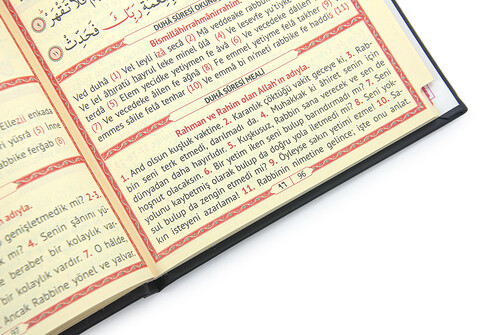 رَبِّكَ فَحَدِّثْ
DUHÂ SÛRESİ OKUNU
Bismillâhirrahmânirrahîm.
Ved duhâ (1) Vel leyli izâ secâ (2) Mâ veddeake rabbük
Ve lel âhıratü hayrul leke minel ûlâ (4) Ve lesevfe yu'tîyke
terdâ (5) Elem yecidke yetîymen fe âvâ (6) Ve vecedeke dâllen
(7) Ve vecedeke âilen fe ağnâ (8) Fe emmel yetîyme felâ takher (9)
emmes sâile felâ tenhar (10) Ve emmâ bi nîmeti rabbike fe haddis (11)
DUHÂ SÛRESİ MEALİ
Rahman ve Rahîm olan Allah'ın adıyla.
1. And olsun kuşluk vaktine. 2. Karanlık çöktüğü vakit geceye ki, 3. Rab-
bin seni terk etmedi, darılmadı da. 4. Muhakkak ki âhiret senin için
dünyadan daha hayırlıdır. 5. Kuşkusuz, Rabbin sana verecek ve sen de
hoşnut olacaksın. 6. Bir yetim iken seni bulup barındırmadı mı? 7. Seni
yolunu kaybetmiş olarak bulup da doğru yola iletmedi mi? 8. Seni yok-
sul bulup da zengin etmedi mi? 9. Öyleyse sakın yetimi ezme! 10. Sa-
kın isteyeni azarlama! 11. Rabbinin nimetine gelince; işte onu anlat.
96
Ellezî enkada
yüsrâ (5) İnne
rabbike ferğab (8)
adıyla.
genişletmedik mi? 2-3.
k mı? 4. Senin şânını yü-
e beraber bir kolaylık var-
bir kolaylık vardır. 7. O hâlde,
Ancak Rabbine yönel ve yalvar.